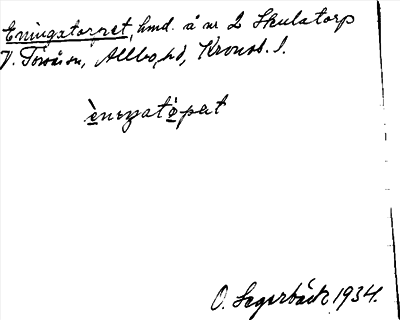 Eningatorpet, hmd. å nr 2 Skulatorp
V. Torsås sn, Allbo hd, Kronob. l.
O. Segerbäck 1934.